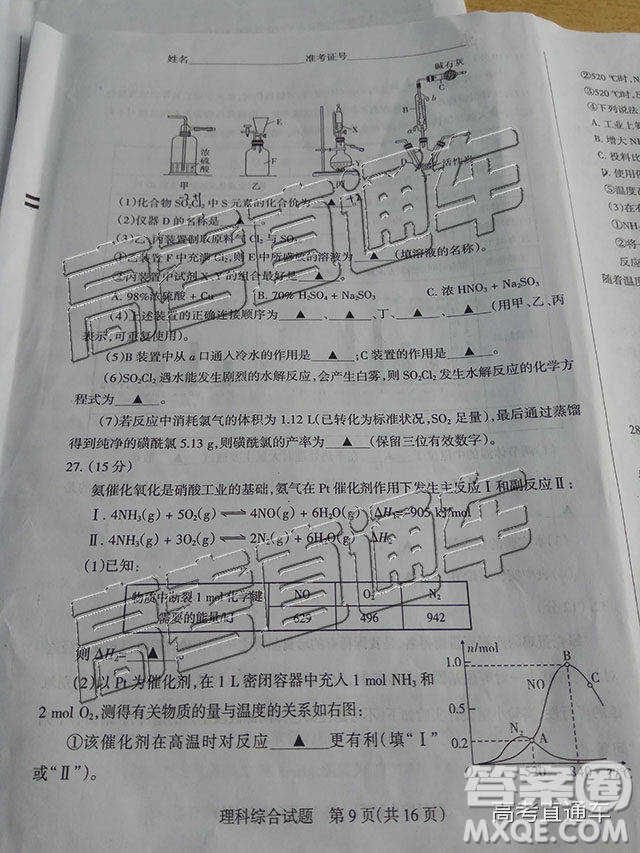 姓名 准考证号
碱石灰
C
B
b
a
D
活性炭
E
F
浓硫酸
甲 乙 丙
(1)化合物 SO₂Cl₂ 中 S 元素的化合价为 ▲ 。
(2)仪器 D 的名称是 ▲ 。
(3)乙、丙装置制取原料气 Cl₂ 与 SO₂。
①乙装置 F 中充满 Cl₂,则 E 中所盛放的溶液为 ▲ (填溶液的名称)。
②丙装置中试剂 X、Y 的组合最好是 ▲ 。
A. 98%浓硫酸 + Cu B. 70% H₂SO₄ + Na₂SO₃ C. 浓 HNO₃ + Na₂SO₃
(4)上述装置的正确连接顺序为 ▲ 、 ▲ 、丁、 ▲ 、 ▲ (用甲、乙、丙
表示,可重复使用)。
(5)B 装置中从 a 口通入冷水的作用是 ▲ ;C 装置的作用是 ▲ 。
(6)SO₂Cl₂ 遇水能发生剧烈的水解反应,会产生白雾,则 SO₂Cl₂ 发生水解反应的化学方
程式为 ▲ 。
(7)若反应中消耗氯气的体积为 1.12 L(已转化为标准状况,SO₂ 足量),最后通过蒸馏
得到纯净的磺酰氯 5.13 g,则磺酰氯的产率为 ▲ (保留三位有效数字)。
27. (15 分)
氨催化氧化是硝酸工业的基础,氨气在 Pt 催化剂作用下发生主反应 Ⅰ 和副反应 Ⅱ:
Ⅰ. 4NH₃(g) + 5O₂(g) ⇌ 4NO(g) + 6H₂O(g) ΔH₁=-905 kJ/mol
Ⅱ. 4NH₃(g) + 3O₂(g) ⇌ 2N₂(g) + 6H₂O(g) ΔH₂
(1)已知:
物质中断裂 1 mol 化学键 NO O₂ N₂
需要的能量/kJ 629 496 942
则 ΔH₂= ▲ 。
(2)以 Pt 为催化剂,在 1 L 密闭容器中充入 1 mol NH₃ 和
2 mol O₂,测得有关物质的量与温度的关系如右图:
①该催化剂在高温时对反应 ▲ 更有利(填“Ⅰ”
或“Ⅱ”)。
n/mol
1.0
0.4
0.2
B
NO
C
N₂
A
520 840
理科综合试题 第 9 页(共 16 页)
②520 ℃时,N
③520 ℃时,
④下列说法
A. 工业上
B. 增大 N
C. 投料比
D. 使用
⑤温度高
(3)在
①NH
②将
反应
随着温
28
高考直通车
答案圈
MXQE.COM
高考直通车